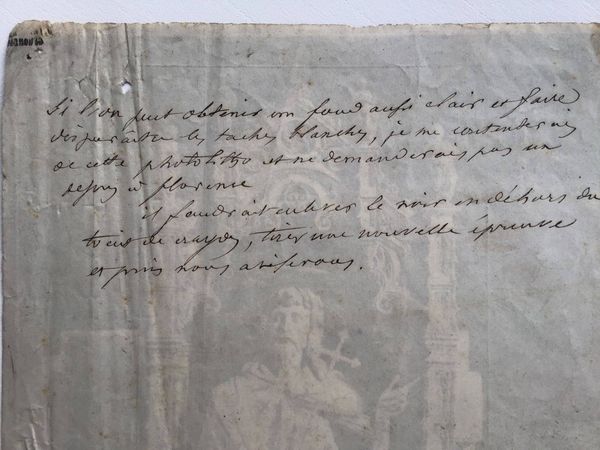 Si l'on peut obtenir un fond aussi clair et faire
disparaître les taches blanches, je me contenterais
de cette photolitho et ne demanderais pas un
dessin à florence
il faudrait enlever le noir en déhors du
trait de crayon, tirer une nouvelle épreuve
et puis nous aviserons.